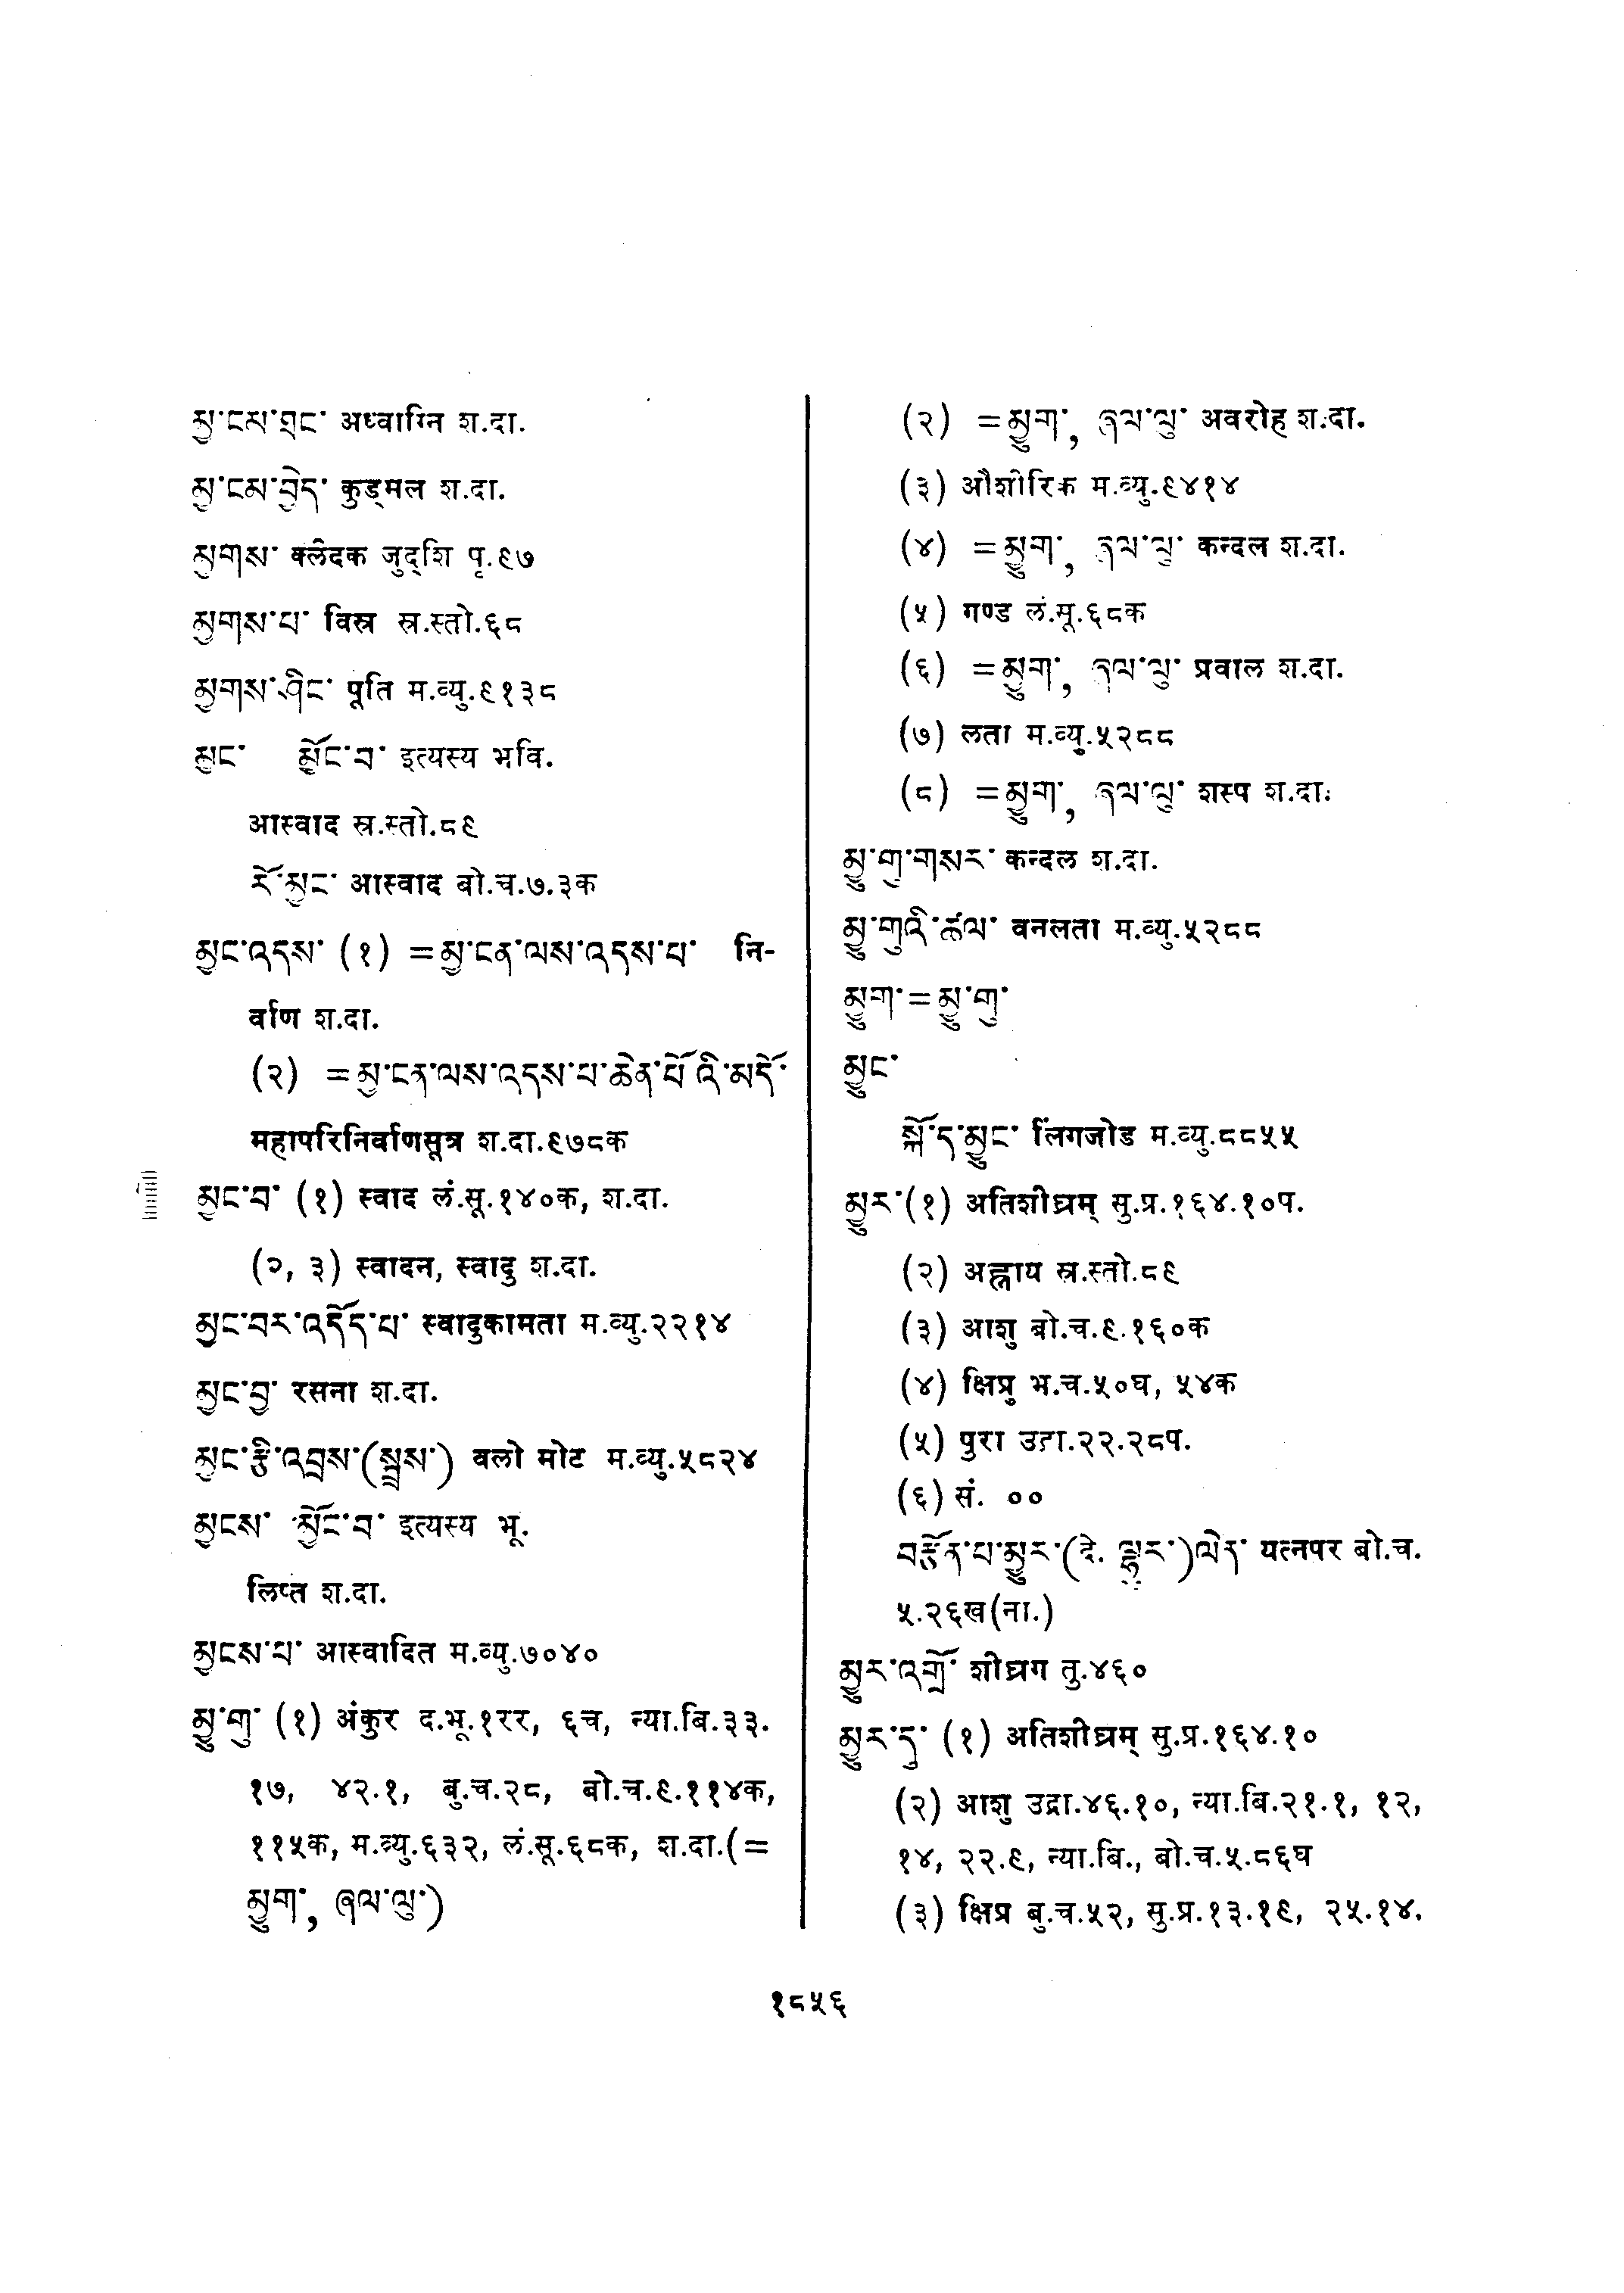 མྱ་ངམ་གྲང་ अध्वाग्नि श.दा.
མྱ་ངམ་བྱེད་ कुड्मल श.दा.
མྱགས་ क्लेदक जुद्शि पृ.९७
མྱགས་པ་ विस्र स्र.स्तो.६८
མྱགས་ཤིང་ पूति म.व्यु.९१३८
མྱང་ མྱོང་བ་ इत्यस्य भवि.
आस्वाद स्र.स्तो.८९
རོ་མྱང་ आस्वाद बो.च.७.३क
མྱང་འདས་ (१) =མྱ་ངན་ལས་འདས་པ་ नि-
र्वाण श.दा.
(२) =མྱ་ངན་ལས་འདས་པ་ཆེན་པོ་འི་མདོ་
महापरिनिर्वाणसूत्र श.दा.९७८क
མྱང་བ་ (१) स्वाद लं.सू.१४०क, श.दा.
(२, ३) स्वादन, स्वादु श.दा.
མྱང་བར་འདོད་པ་ स्वादुकामता म.व्यु.२२१४
མྱང་བྱ་ रसना श.दा.
མྱང་རྩི་འབྲས་(སྦྲས་) वलो मोट म.व्यु.५८२४
མྱངས་ མྱོང་བ་ इत्यस्य भू.
लिप्त श.दा.
མྱངས་པ་ आस्वादित म.व्यु.७०४०
མྱུ་གུ་ (१) अंकुर द.भू.१रर, ६च, न्या.बि.३३.
१७, ४२.१, बु.च.२८, बो.च.९.११४क,
११५क, म.व्यु.६३२, लं.सू.६८क, श.दा.(=
མྱུག་, ཞལ་ལུ་)
(२) =མྱུག་, ཞལ་ལུ་ अवरोह श.दा.
(३) औशीरिक म.व्यु.९४१४
(४) =མྱུག་, ཞལ་ལུ་ कन्दल श.दा.
(५) गण्ड लं.सू.६८क
(६) =མྱུག་, ཞལ་ལུ་ प्रवाल श.दा.
(७) लता म.व्यु.५२८८
(८) =མྱུག་, ཞལ་ལུ་ शस्प श.दा.
མྱུ་གུ་གསར་ कन्दल श.दा.
མྱུ་གུའི་ཚལ་ वनलता म.व्यु.५२८८
མྱུག་=མྱུ་གུ་
མྱུང་
སྐོ་ད་མྱུང་ लिंगजोड म.व्यु.८८५५
མྱུར་(१) अतिशीघ्रम् सु.प्र.१६४.१०प.
(२) अह्नाय स्र.स्तो.८९
(३) आशु बो.च.९.१६०क
(४) क्षिप्रु भ.च.५०घ, ५४क
(५) पुरा उद्रा.२२.२८प.
(६) सं. ००
བརྩོན་པ་མྱུར་(दे. ལྷུར་)ལེན་ यत्नपर बो.च.
५.२६ख(ना.)
མྱུར་འགྲོ་ शीघ्रग तु.४६०
མྱུར་དུ་ (१) अतिशीघ्रम् सु.प्र.१६४.१०
(२) आशु उद्रा.४६.१०, न्या.बि.२१.१, १२,
१४, २२.९, न्या.बि., बो.च.५.८६घ
(३) क्षिप्र बु.च.५२, सु.प्र.१३.१९, २५.१४.
१८५६